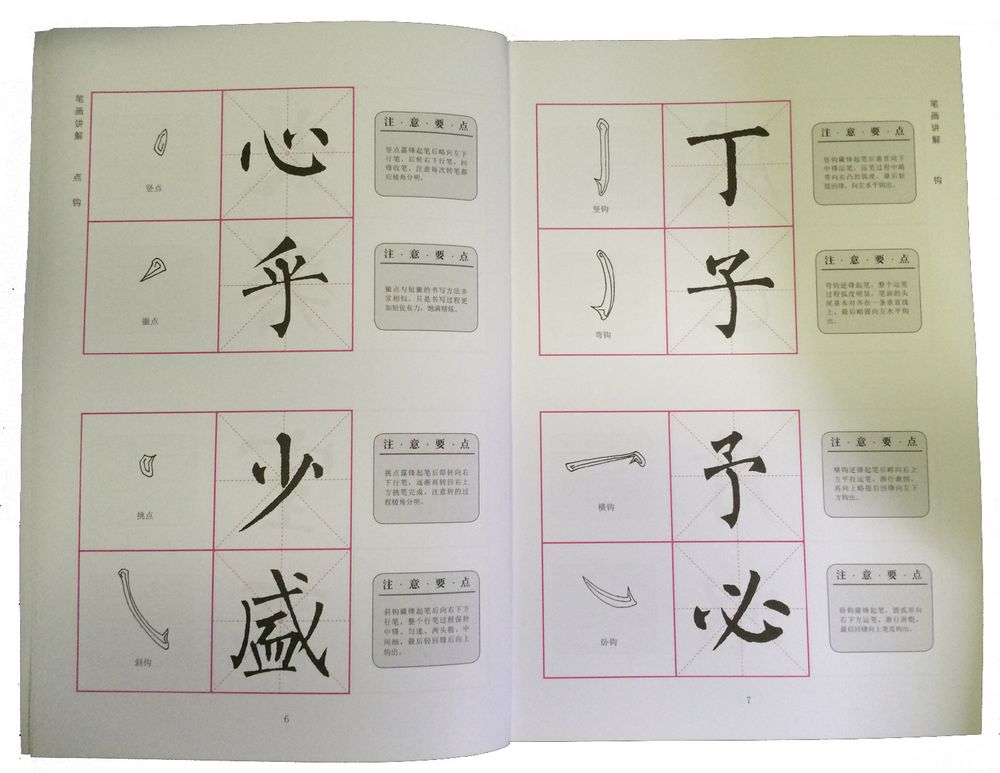 笔画讲解
点
钩
竖点
心
注·意·要·点
竖点露锋起笔后略向左下
行笔，后转右下行笔，回
锋收笔。注意每次转笔都
应棱角分明。
撇点
乎
注·意·要·点
撇点与短撇的书写方法非
常相似，只是书写过程更
加短促有力，饱满精炼。
挑点
少
注·意·要·点
挑点露锋起笔后即转向右
下行笔，逐渐再转回右上
方挑笔完成，注意转的过
程棱角分明。
斜钩
盛
注·意·要·点
斜钩藏锋起笔后向右下方
行笔，整个行笔过程保持
中锋，匀速，两头粗，中
间细，最后轻回锋后向上
钩出。
6
笔画讲解
钩
竖钩
丁
注·意·要·点
竖钩藏锋起笔后垂直向下
中锋运笔，运笔过程中略
带向右凸的弧度，最后轻
提回锋，向左水平钩出。
弯钩
子
注·意·要·点
弯钩逆锋起笔，整个运笔
过程弧度明显，笔画的头
尾基本对齐在一条垂直线
上，最后略提向左水平钩
出。
横钩
予
注·意·要·点
横钩逆锋起笔后略向右上
方平拉运笔，渐行渐细，
再向上略提后回锋向左下
方钩出。
卧钩
必
注·意·要·点
卧钩露锋起笔，圆弧形向
右下方运笔，渐行渐粗，
最后回锋向上笔直钩出。
7